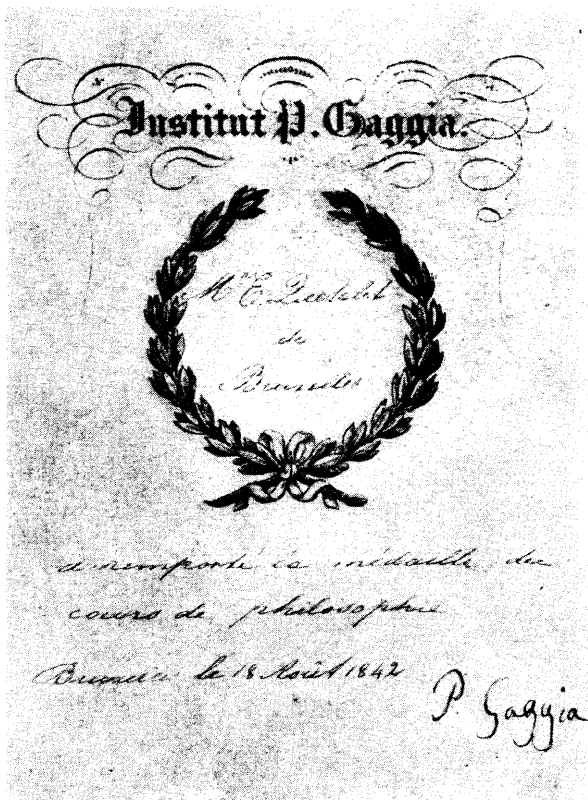 Institut P. Gaggia.
Mr E. Quetelet
de
Bruxelles
a remporté la médaille du
cours de philosophie
Bruxelles le 18 Août 1842
P. Gaggia